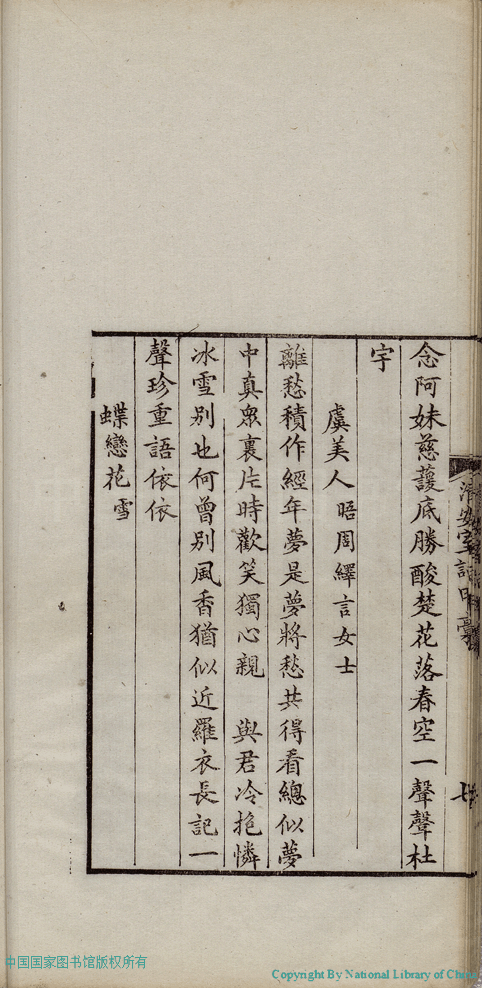 念阿妹慈護底勝酸楚花落春空一聲聲杜
宇
虞美人 晤周繹言女士
離愁積作經年夢是夢將愁共得看總似夢
中真衆裏片時歡笑獨心親 與君冷抱憐
冰雪別也何曾別風香猶似近羅衣長記一
聲珍重語依依
蝶戀花 雪
中国国家图书馆版权所有
Copyright By National Library of China